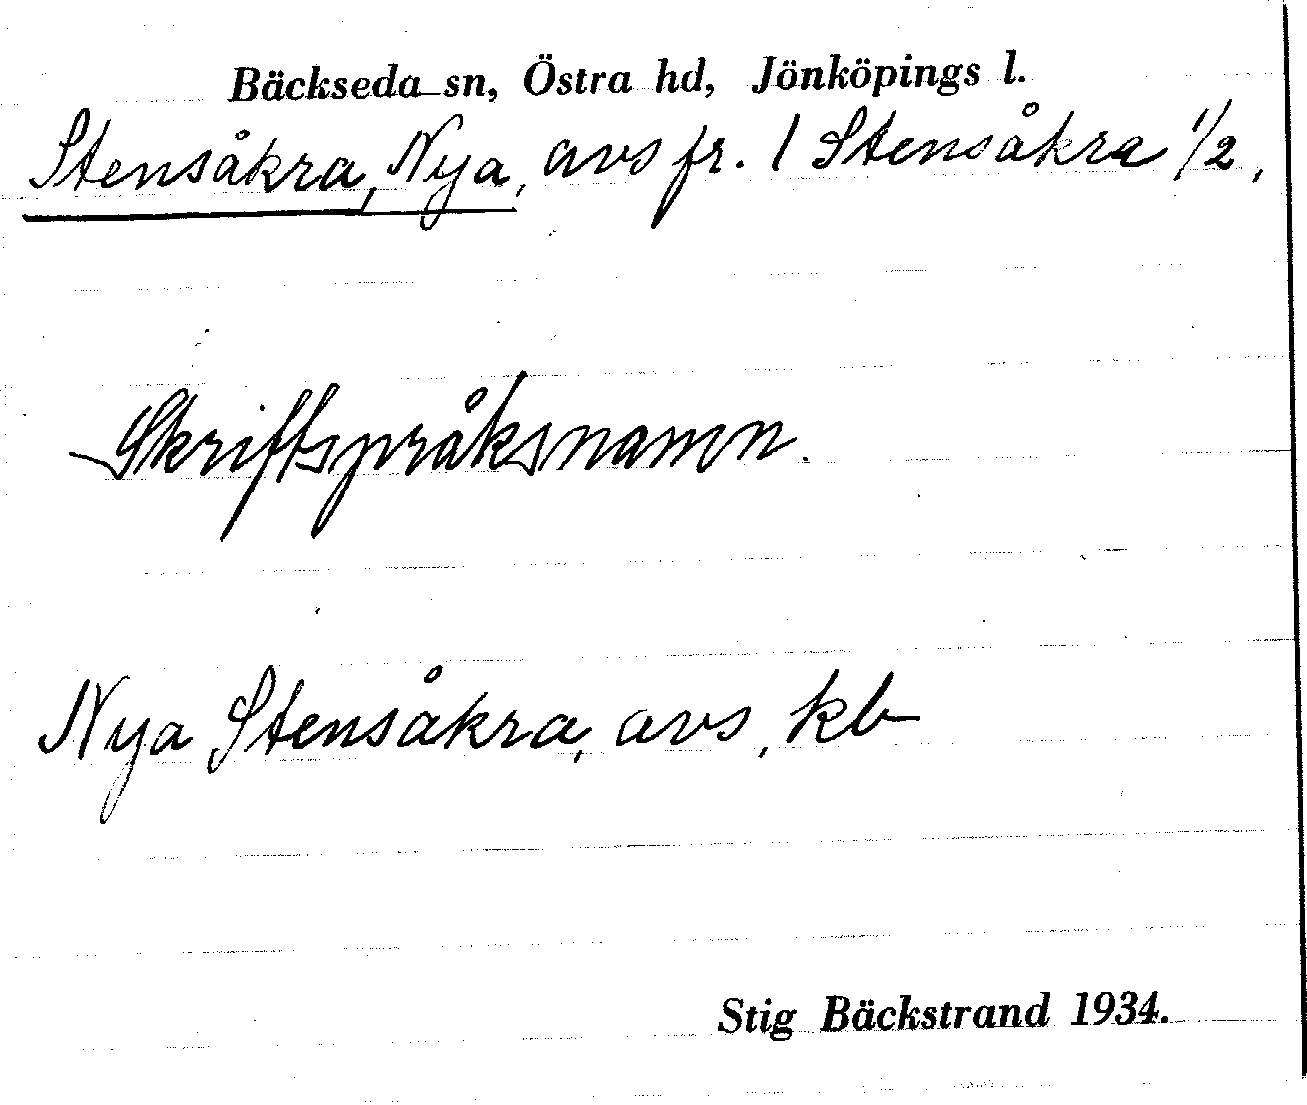 Bäckseda sn, Östra hd, Jönköpings l.
Stensåkra, Nya, avs fr. 1 Stensåkra 1/2,
Skriftspråksnamn.
Nya Stensåkra, avs, kb
Stig Bäckstrand 1934.